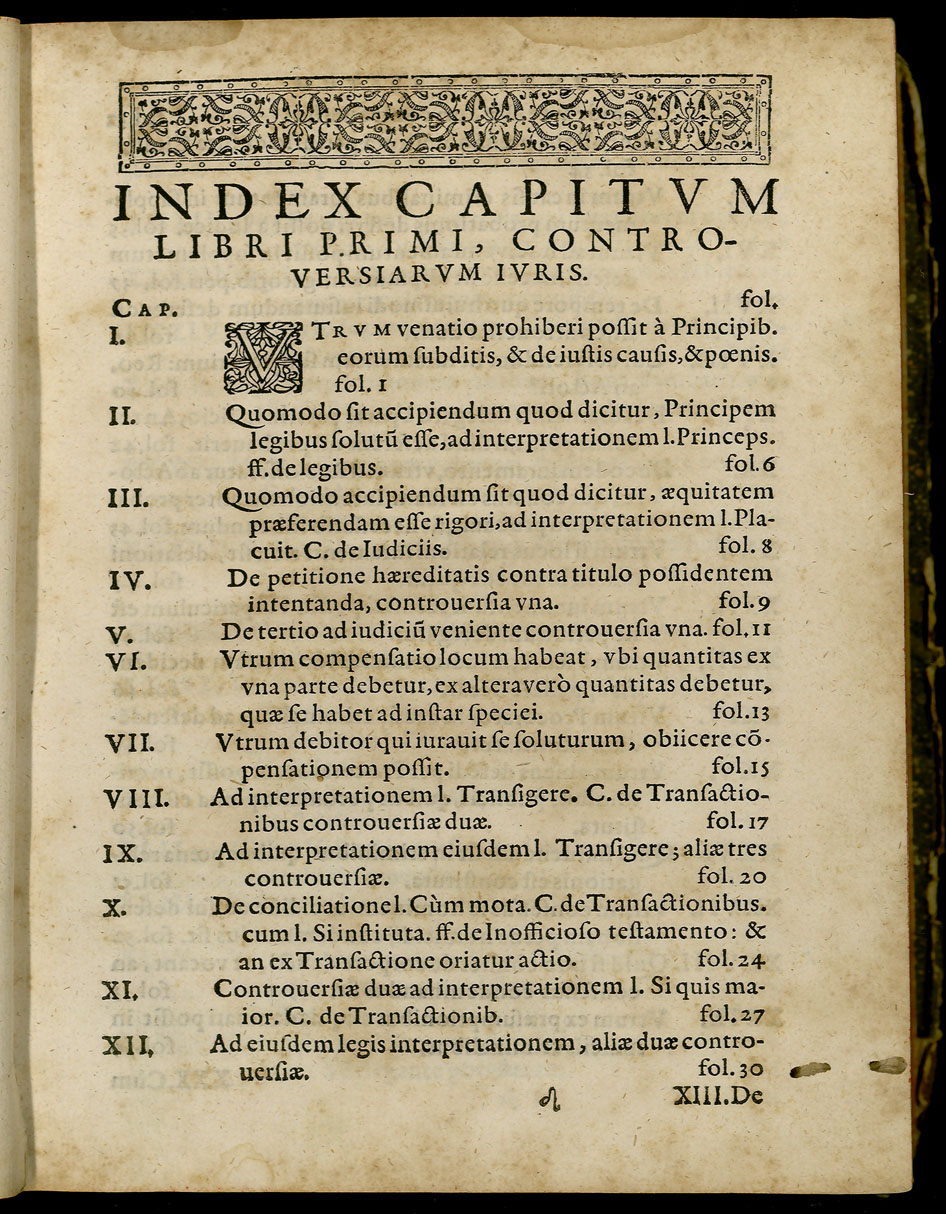 INDEX CAPITVM
LIBRI PRIMI, CONTRO-
VERSIARVM IVRIS.
CAP. fol.
I. VTRVM venatio prohiberi poſſit à Principib.
eorum ſubditis, & de iuſtis cauſis, & pœnis.
fol. 1
II. Quomodo ſit accipiendum quod dicitur, Principem
legibus ſolutū eſſe, ad interpretationem l. Princeps.
ff. de legibus. fol. 6
III. Quomodo accipiendum ſit quod dicitur, æquitatem
præferendam eſſe rigori, ad interpretationem l. Pla-
cuit. C. de Iudiciis. fol. 8
IV. De petitione hæreditatis contra titulo poſſidentem
intentanda, controuerſia vna. fol. 9
V. De tertio ad iudiciū veniente controuerſia vna. fol. 11
VI. Vtrum compenſatio locum habeat, vbi quantitas ex
vna parte debetur, ex altera verò quantitas debetur,
quæ ſe habet ad inſtar ſpeciei. fol. 13
VII. Vtrum debitor qui iurauit ſe ſoluturum, obiicere cō-
penſationem poſſit. fol. 15
VIII. Ad interpretationem l. Tranſigere. C. de Tranſactio-
nibus controuerſiæ duæ. fol. 17
IX. Ad interpretationem eiuſdem l. Tranſigere; aliæ tres
controuerſiæ. fol. 20
X. De conciliatione l. Cùm mota. C. de Tranſactionibus.
cum l. Si inſtituta. ff. de Inofficioſo teſtamento: &
an ex Tranſactione oriatur actio. fol. 24
XI. Controuerſiæ duæ ad interpretationem l. Si quis ma-
ior. C. de Tranſactionib. fol. 27
XII. Ad eiuſdem legis interpretationem, aliæ duæ contro-
uerſiæ. fol. 30
XIII. De